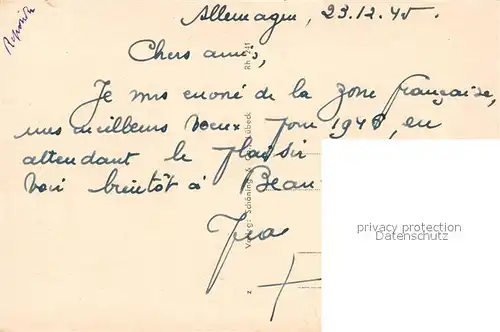 Répondu
Allemagne, 23.12.45.
Chers amis,
Je vous envoie de la zone française,
mes meilleurs voeux pour 1946, en
attendant le plaisir
voir bientôt à Beau
Verlag: Schöning & Lübeck
Rh. 241
privacy protection
Datenschutz